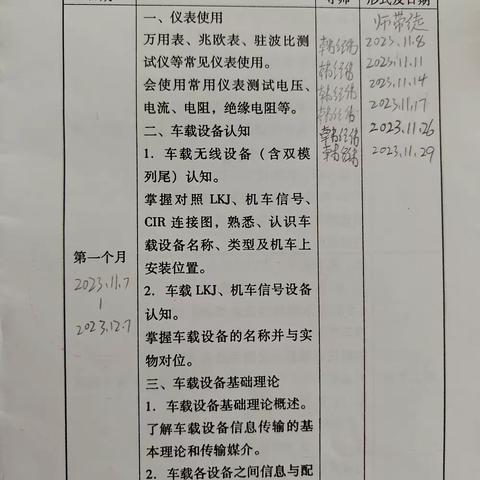 导师
形式及日期
师带徒
一、仪表使用
万用表、兆欧表、驻波比测
试仪等常见仪表使用。
会使用常用仪表测试电压、
电流、电阻，绝缘电阻等。
二、车载设备认知
1．车载无线设备（含双模
列尾）认知。
掌握对照 LKJ、机车信号、
CIR 连接图，熟悉、认识车
载设备名称、类型及机车上
安装位置。
2．车载 LKJ、机车信号设备
认知。
掌握车载设备的名称并与实
物对位。
三、车载设备基础理论
1．车载设备基础理论概述。
了解车载设备信息传输的基
本理论和传输媒介。
2．车载各设备之间信息与配
第一个月
2023.11.7
2023.12.7
2023.11.8
2023.11.11
2023.11.14
2023.11.17
2023.11.26
2023.11.29